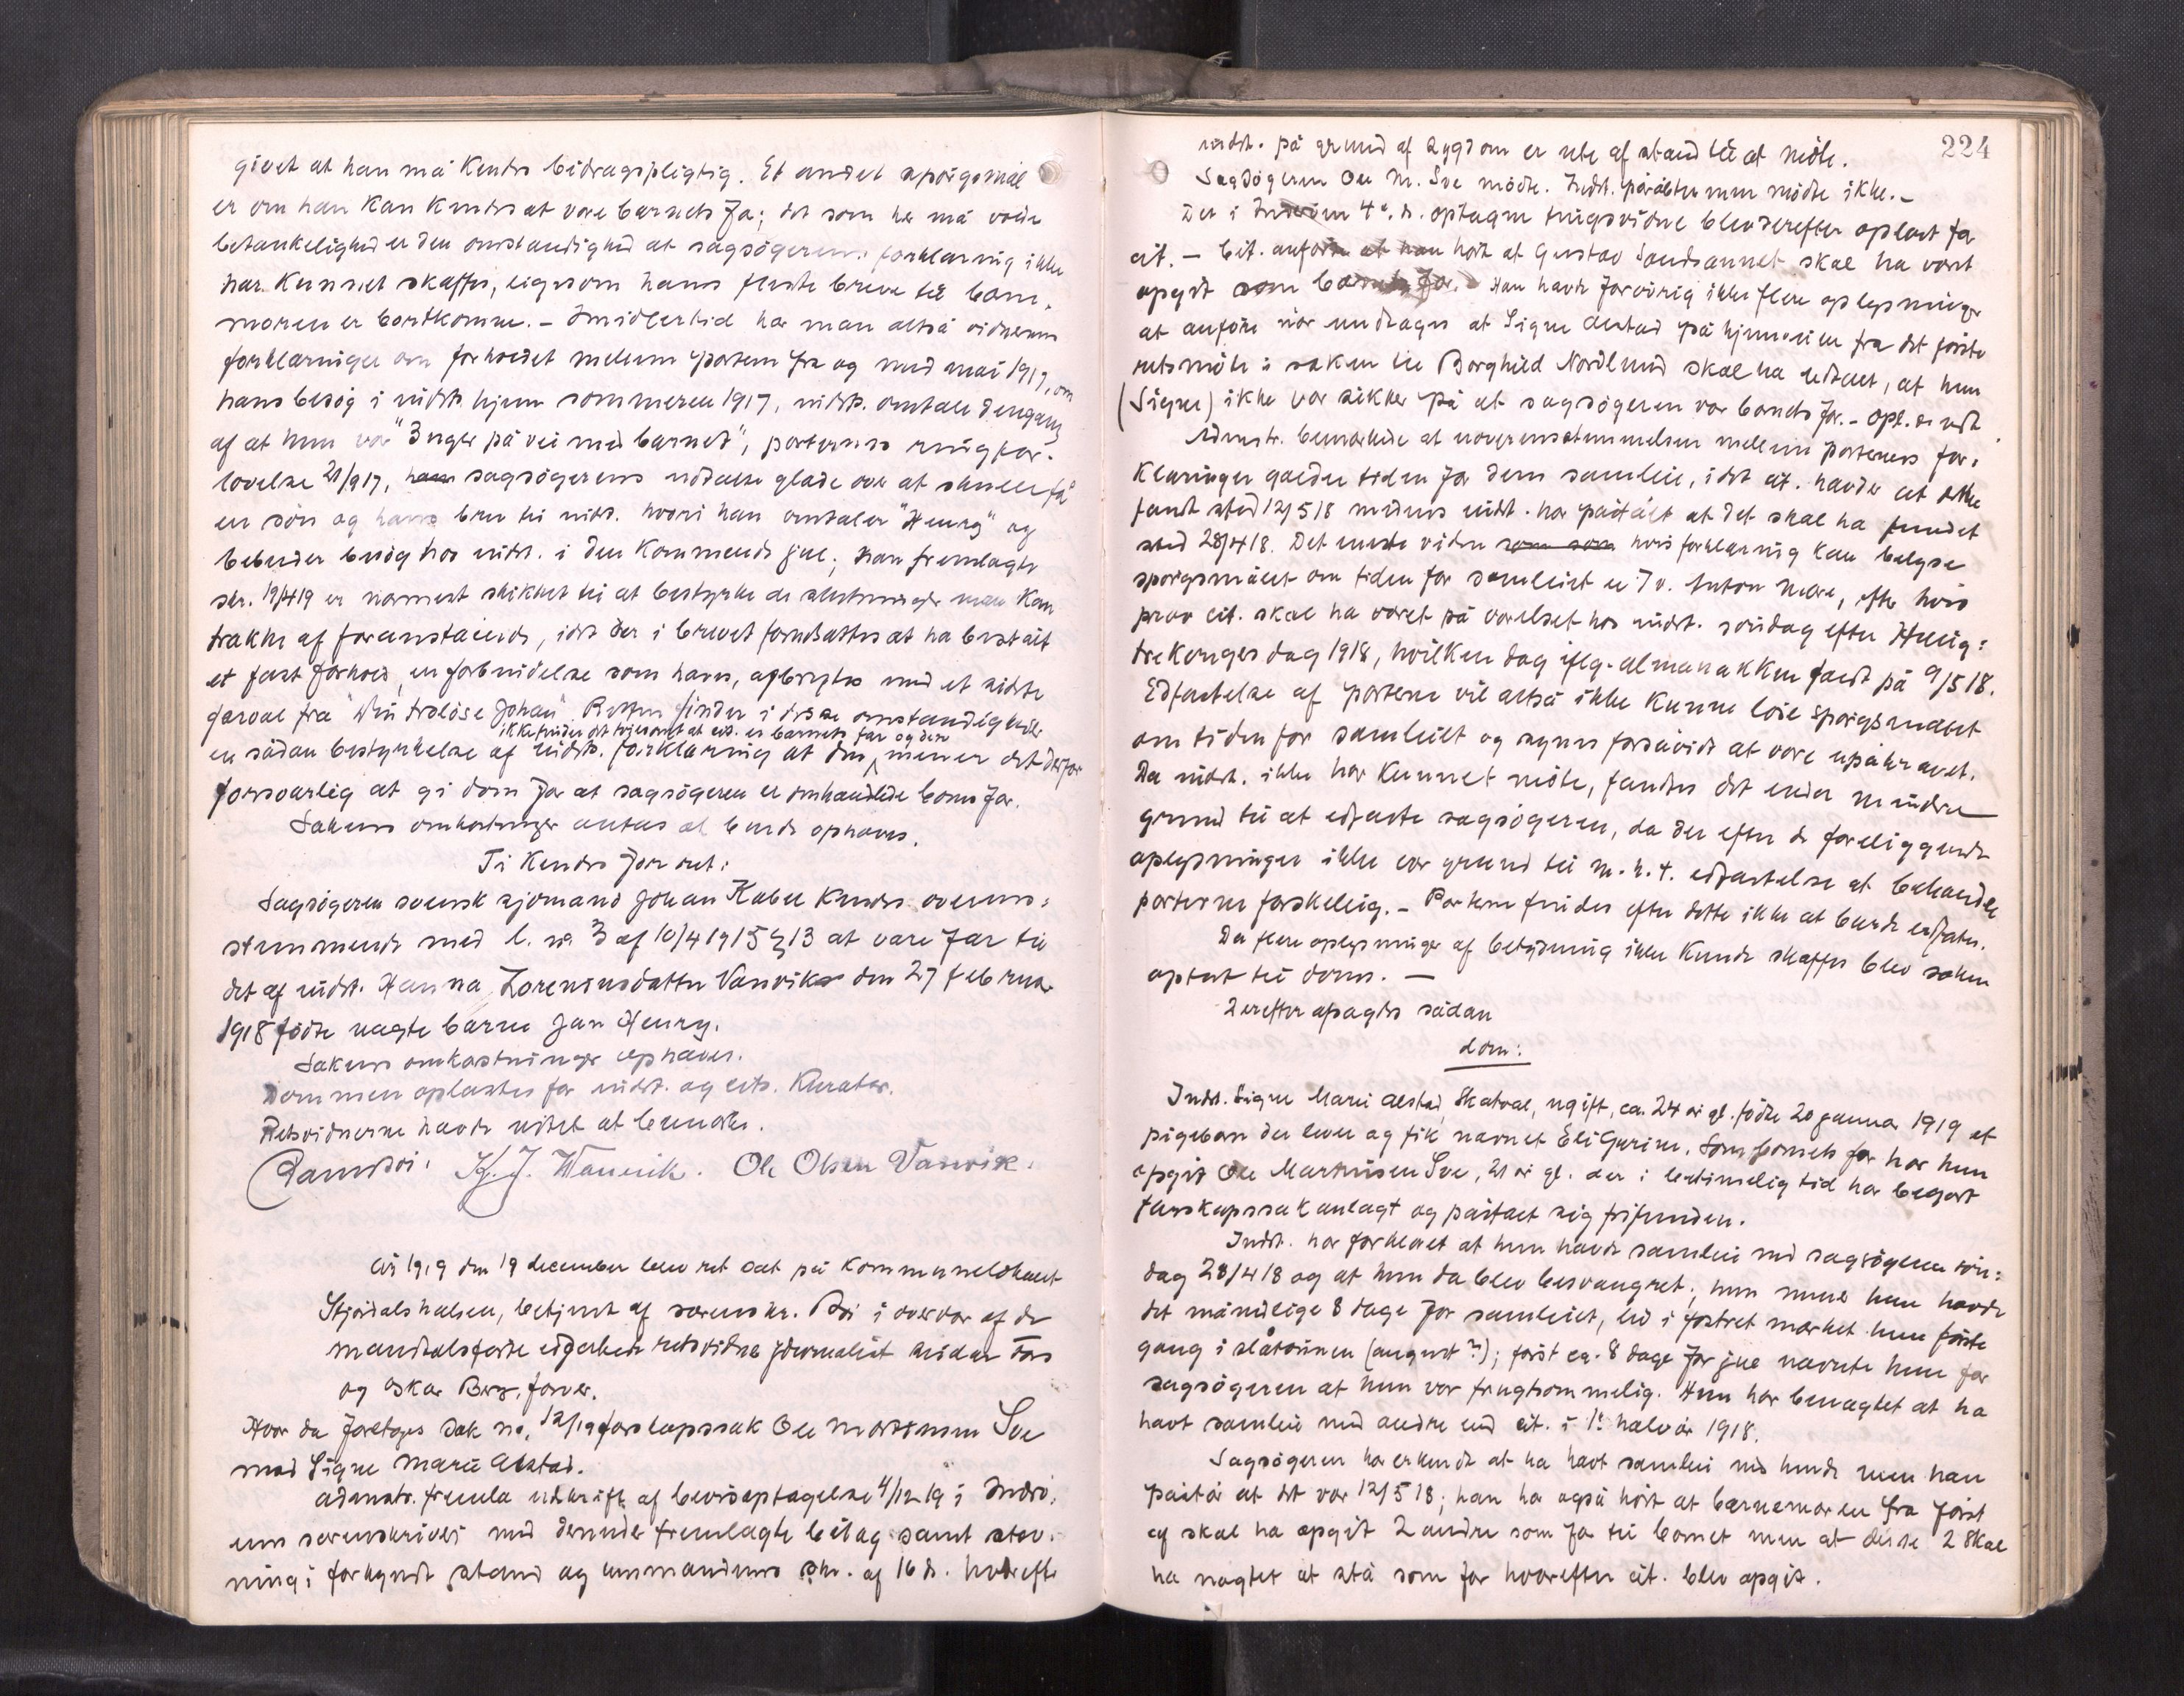 givet at han må kendes bidragspligtig. Et andet spörgsmål
er om han kan kendes at være barnets far; det som her må volde
betænkelighed er den omstændighed at sagsögerens forklaring ikke
har kunnet skaffes, ligesom hans fleste breve til barne-
moren er bortkomne. - Imidlertid har man altså vidnernes
forklaringer om forholdet mellem parterne fra og med mai 1917, om
hans besög i indst. hjem sommeren 1917, indst. omtale dengang
af at hun var "3 uger på vei med barnet", parternes ringfor-
lovelse 21/917, sagsögerens udtalte glæde over at skulle få
en sön og hans brev til indst. hvori han omtaler "Henry" og
bebuder besög hos indst. i den kommende jul; Han fremlagte
skr. 19/419 er nærmest skikket til at bestyrke de slutninger man kan
trække af foranstående, idet der i brevet forudsættes at ha bestått
et fast forhold, en forbindelse som havs, afbrytes med et sidste
farvæl fra "Din trolöse Johan" Retten finder i disse omstændigheder
ikke finder det tvilsomt at cit. er barnets far og den
en sådan bestyrkelse af indst. forklaring at den mener det derfor
forsvarlig at gi dom for at sagsögeren er omhandlede barns far.
Sakens omkostninger antas at burde ophæves.
Ti kendes for ret:
Sagsögeren svensk sjömand Johan Kabel kendes overens-
stemmende med l. no 3 af 10/4 1915 § 13 at være far til
det af indst. Hanna Lorentsdatter Vanvik den 27 februar
1918 födte uægte barn Jan Henry.
Sakens omkostninger ophæves.
Dommen oplæstes for indst. og cits. Kurator.
Retsvidnerne havde intet at bemærke.
Ole Olsen Vanvik.
År 1919 den 19 december blev ret sat på Kommunelokalet
Stjördalshalsen, betjent af sorenskr. i overvær af de
mandtalsförte edfæstede retsvidner journalist
og Oskar Berg, farver.
Hvor da foretoges sak no. 12/19 farskapssak Ole Martinsen Sve
mod Signe Marie Alstad.
Admstr. fremla utskrift af bevisoptagelse 4/12 19 i Inder-
öens sorenskriveri med derunder fremlagte bilag samt stev-
ning i forkyndt stand og lensmandens skr. af 16 ds. hvorefter
224
indst. på grund af sygdom er ute af stand til at möte.
Sagsögeren Ole M. Sve mödte. Indst. påråbtes men mödte ikke. -
Det i Inderöen 4 ds. optagne tingsvidne blev derefter oplæst for
cit. - Cit. anförte at han hört at Gustav Sandsaunet skal ha vært
opgit som barnets far. Han havde forövrig ikke flere oplysninger
at anföre når undtages at Signe Alstad på hjemveien fra det förste
retsmöte i saken til Borghild Nordlund skal ha udtalt, at hun
(Signe) ikke var sikker på at sagsögeren var barnets far. - Opl. & vedt.
Admstr. bemærkede at uoverensstemmelsen mellem parternes for-
klaringer gælder tiden for deres samleie, idet cit. hævder at dette
fandt sted 12/5 18 medens indst. har påstått at det skal ha fundet
sted 28/4 18. Det eneste vidne hvis forklaring kan belyse
spörgsmålet om tiden for samleiet er 7 v. Anton Mære, efter hvis
prov cit. skal ha været på værelset hos indst. söndag efter Hellig-
trekongersdag 1918, hvilken dag iflg. almanakken faldt på 9/5 18.
Edfæstelse af parterne vil altså ikke kunne löse spörgsmålet
om tiden for samleiet og synes forsåvidt at være upåkrævet.
Da indst. ikke har kunnet möte, fandtes det endda mindre
grund til at edfæste sagsögeren, da der efter de foreliggende
oplysninger ikke var grund til m. h. t. edfæstelse at behandle
parterne forskellig. - Parterne findes efter dette ikke at burde edfæstes.
Da flere oplysninger af betydning ikke kunde skaffes blev saken
optat til doms. -
Derefter afsagdes sådan
dom:
Indst. Signe Marie Alstad, Skatval, ugift, ca. 24 år gl. födte 20 januar 1919 et
pigebarn der lever og fik navnet Eli Gurine. Som barnets far har hun
opgit Ole Martinsen Sve, 21 år gl. der i betimelig tid har begært
farskapssak anlagt og påstået sig frifunden.
Indst. har forklaret at hun havde samleie med sagsögeren sön-
dag 28/4 18 og at hun da blev besvangret; hun mener hun havde
det månedlige 8 dage för samleiet, liv i fostret mærket hun förste
gang i slåtonnen (august?); först ca. 8 dage för jul nævnte hun for
sagsögeren at hun var frugtsommelig. Hun har benægtet at ha
havt samleie med andre end cit. i 1. halvår 1918.
Sagsögeren har erkendt at ha havt samleie med hende men han
påstår at det var 12/5 18; han har også hört at barnemoren fra först
af skal ha opgit 2 andre som far til barnet men at disse 2 skal
ha nægtet at stå som far hvorefter cit. blev opgit.